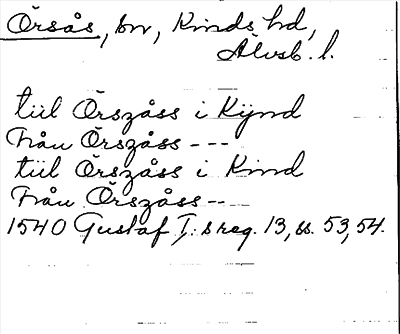 Örsås, sn, Kinds hd,
Älvsb. l.
tiil Örszåss i Kijnd
Från Örszåss ---
tiil Örszåss i Kind
Från Örszåss --
1540 Gustaf I:s reg. 13, ss. 53, 54.